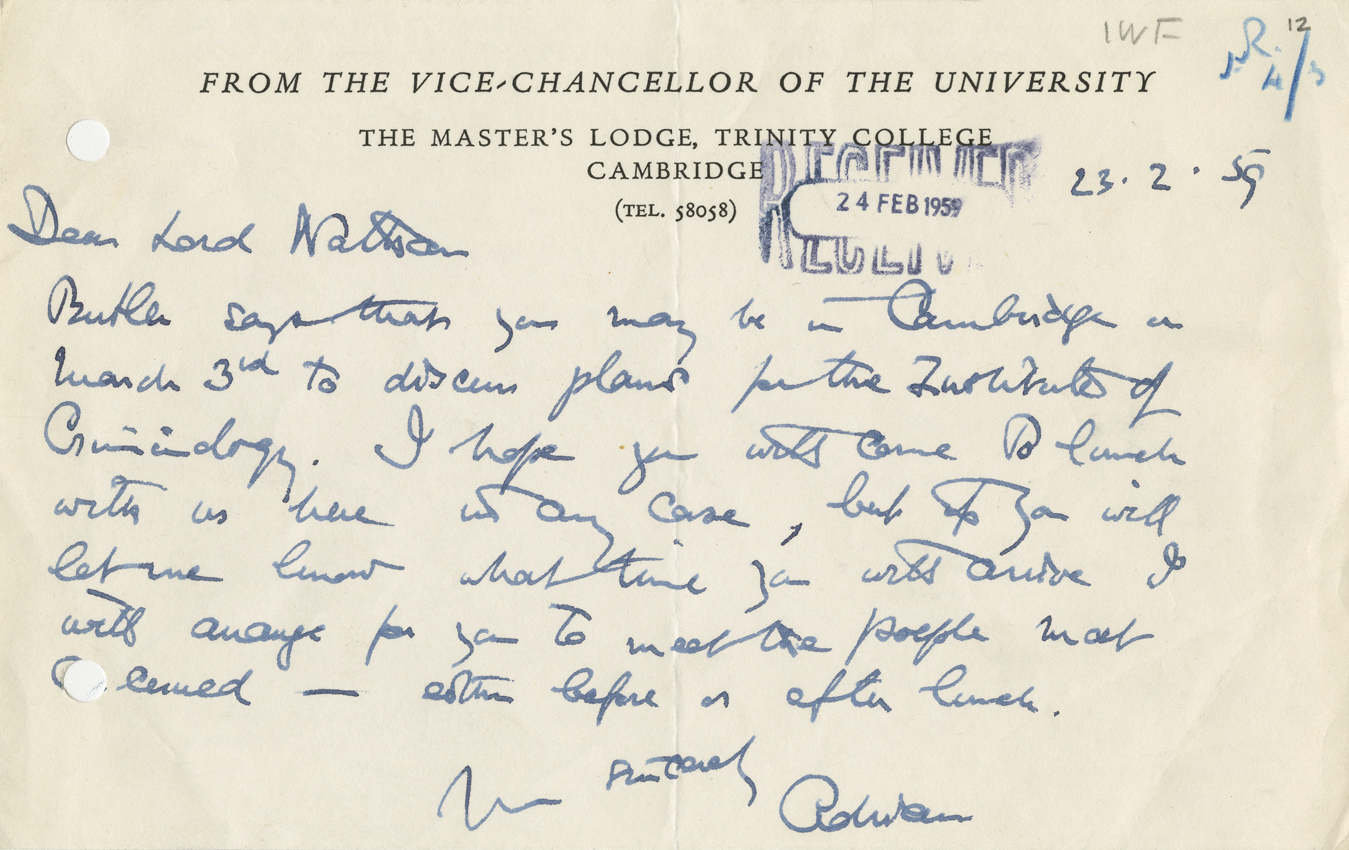 IWF
12
J.R.
4/3
FROM THE VICE-CHANCELLOR OF THE UNIVERSITY
THE MASTER'S LODGE, TRINITY COLLEGE
CAMBRIDGE
(TEL. 58058)
RECEIVED
24 FEB 1959
23. 2. 59
Dear Lord Nathan
Butler says that you may be in Cambridge on
March 3rd to discuss plans for the Institute of
Criminology. I hope you will come to lunch
with us here in any case, but if you will
let me know what time you will arrive I
will arrange for you to meet the people most
cerned — either before or after lunch.
Yours sincerely
Adrian